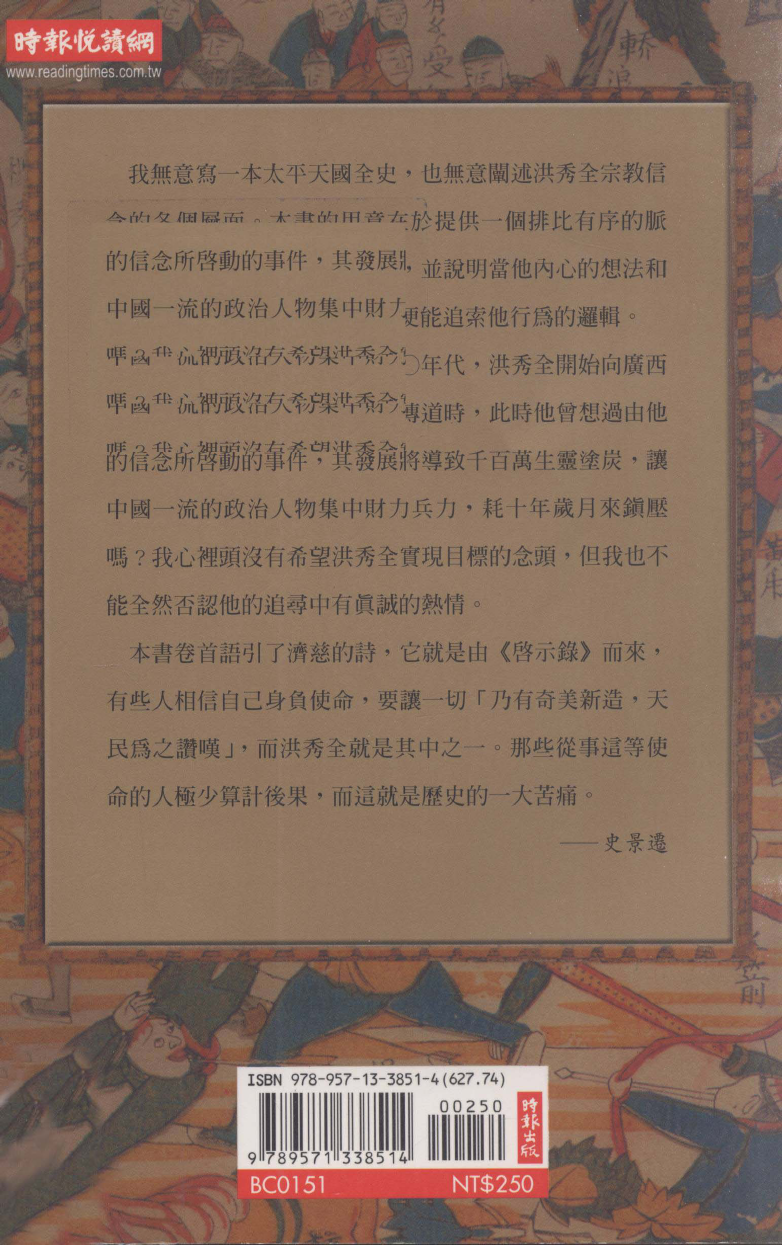 時報悅讀網
www.readingtimes.com.tw
有
受
轎
浪
我無意寫一本太平天國全史，也無意闡述洪秀全宗教信
於提供一個排比有序的脈
的信念所啓動的事件，其發展
並說明當他內心的想法和
中國一流的政治人物集中財力
便能追索他行爲的邏輯。
年代，洪秀全開始向廣西
傳道時，此時他曾想過由他
的信念所啓動的事件，其發展將導致千百萬生靈塗炭，讓
中國一流的政治人物集中財力兵力，耗十年歲月來鎭壓
嗎？我心裡頭沒有希望洪秀全實現目標的念頭，但我也不
能全然否認他的追尋中有眞誠的熱情。
本書卷首語引了濟慈的詩，它就是由《啓示錄》而來，
有些人相信自己身負使命，要讓一切「乃有奇美新造，天
民爲之讚嘆」，而洪秀全就是其中之一。那些從事這等使
命的人極少算計後果，而這就是歷史的一大苦痛。
——史景遷
箭
ISBN 978-957-13-3851-4 (627.74)
00250
9 789571 338514
時報出版
BC0151
NT$250